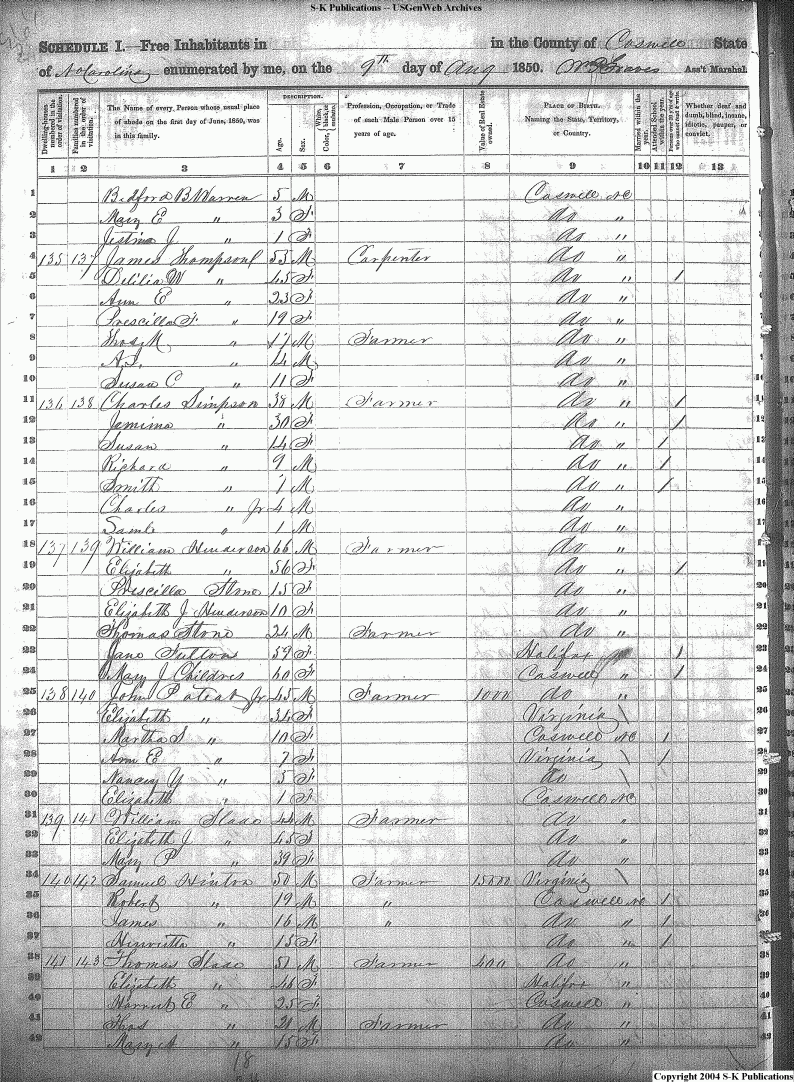 S-K Publications -- USGenWeb Archives
SCHEDULE I.—Free Inhabitants in in the County of Caswell State
of No Carolina enumerated by me, on the 9th day of Aug 1850. Ass't Marshal.
Dwelling-houses numbered in the order of visitation. Families numbered in the order of visitation. The Name of every Person whose usual place of abode on the first day of June, 1850, was in this family. DESCRIPTION. Age. Sex. Color, White, black, or mulatto. Profession, Occupation, or Trade of each Male Person over 15 years of age. Value of Real Estate owned. PLACE OF BIRTH. Naming the State, Territory, or Country. Married within the year. Attended School within the year. Persons over 20 y'rs of age who cannot read & write. Whether deaf and dumb, blind, insane, idiotic, pauper, or convict.
1 2 3 4 5 6 7 8 9 10 11 12 13
1 Bedford B Warren 5 M Caswell NC
2 Mary E " 3 F do "
3 Justina J " 1 F do "
4 135 137 James Thompson 53 M Carpenter do "
5 Delilia W " 45 F do " /
6 Ann E " 23 F do "
7 Prescilla F " 19 F do "
8 Thos M " 17 M Farmer do "
9 " 14 M do "
10 Susan C " 11 F do "
11 136 138 Charles Simpson 38 M Farmer do " /
12 Jemima " 30 F do " /
13 Susan " 14 F do " /
14 Richard " 9 M do " /
15 Smith " 7 M do " /
16 Charles " Jr 4 M do "
17 Saml " 1 M do "
18 137 139 William Henderson 66 M Farmer do "
19 Elizabeth " 56 F do " /
20 Prescilla Stone 15 F do "
21 Elizabeth J Henderson 10 F do "
22 Thomas Stone 24 M Farmer do "
23 Jane Suttons 59 F Halifax /
24 Mary J Childres 60 F Caswell " /
25 138 140 John Poteat Jr 45 M Farmer 1000 do "
26 Elizabeth " 34 F Virginia \
27 Martha S " 10 F Caswell NC /
28 Ann E " 7 F Virginia \ /
29 Nancy Y " 5 F do \
30 Elizabeth " 1 F Caswell NC
31 139 141 William Slade 44 M Farmer do "
32 Elizabeth J " 45 F do "
33 Mary P " 39 F do "
34 140 142 Samuel Hinton 50 M Farmer 15000 Virginia \
35 Robert " 19 M " Caswell NC /
36 James " 16 M " do " /
37 Henrietta " 15 F do " /
38 141 143 Thomas Slade 51 M Farmer 400 do "
39 Elizabeth " 46 F Halifax "
40 Harriet E " 25 F Caswell "
41 Thos " 21 M Farmer do "
42 Mary A " 15 F do "
18
Copyright 2004 S-K Publications